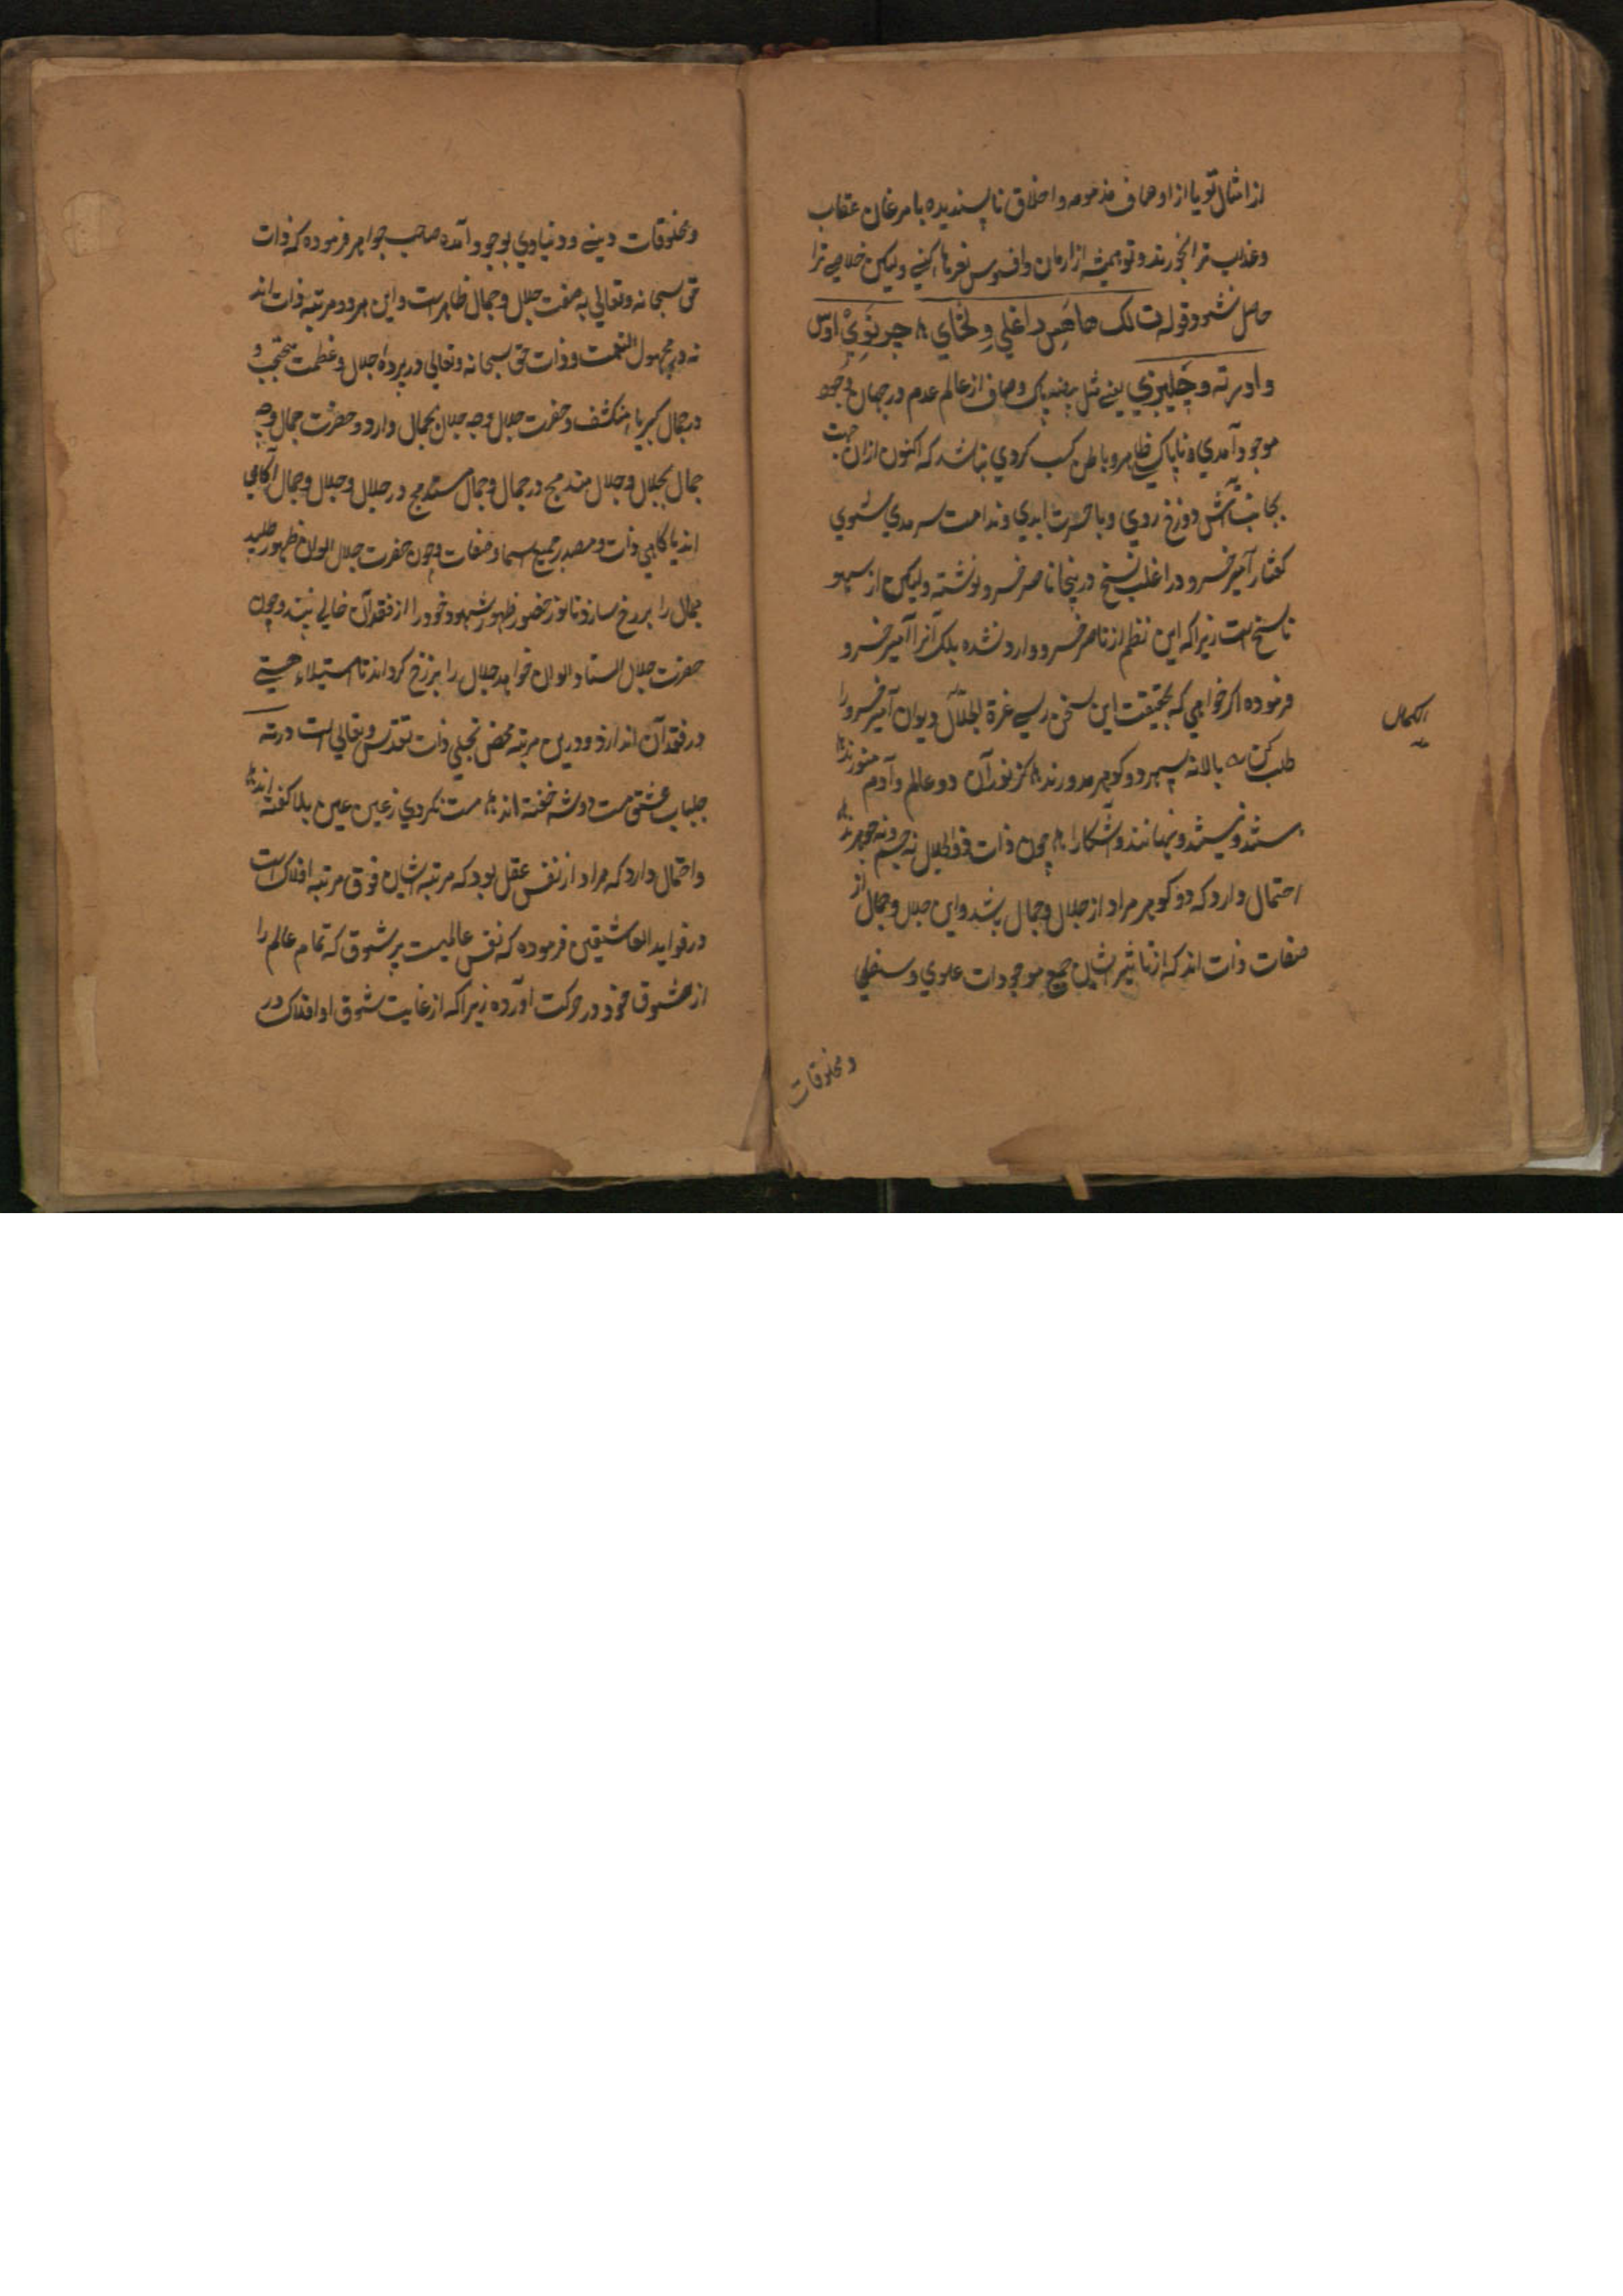 از امثال تو یا از اوصاف مذمومه و اخلاق ناپسندیده با مرغان عقاب
و عذاب ترا بخورند و تو همیشه از ارمان و افسوس نعرها کنی ولیکن خلاصے ترا
حاصل نشود قوله ت لک
و اورته و یعنے مثل بیضه پاک و صاف از عالم عدم در جهان وجود
موجود آمدی و ناپاکی ظاهر و باطن کسب کردی نباشد که اکنون ازان جهت
بجانب آتش دوزخ روی و با حسرت ابدی و ندامت سرمدی شوی
گفتار آمیر خسرو در اغلب نسخ درینجا ناصر خسرو نوشته ولیکن از سهو
ناسخ است زیرا که این نظم از ناصر خسرو وارد نشده بلک آنرا آمیر خسرو
فرموده اگر خواهی که بحقیقت این سخن رسی غرة الکمال دیوان آمیر خسرو را
الکمال
طلب کن بالا نه سپهر دو گوهر مدورند کز نور آن دو عالم و آدم منورند
هستند و نیستند و نهانند و آشکارا چون ذات ذوالجلال نه جسم و نه جوهرند
احتمال دارد که دو گوهر مراد از جلال و جمال باشد و این جلال و جمال از
صفات ذات اند که از تاثیر ایشان جمیع موجودات علوی و سفلی
و مخلوقات
و مخلوقات دینے و دنیاوی بوجود آمده صاحب جواهر فرموده که ذات
حق سبحانه و تعالی به صفت جلال و جمال ظاهر است و این هر دو مرتبه ذات اند
نه در مجهول النعت و ذات حق سبحانه و تعالی در پرده جلال و عظمت محتجب و
در جمال کبریا منکشف و حضرت جلال وجه جلال بجمال دارد و حضرت جمال وجه
جمال بجلال و جلال مندمج در جمال و جمال مندمج در جلال و جلال و جمال آگاهی
اند با گاهی ذات و مصدر جمیع اسما و صفات و چون حضرت جلال الوان ظهور طلبد
جمال را برزخ سازد تا نوز حضور ظهور شهود خود را از فقدان خالی نبیند و چون
حضرت جلال الستاد الوان خواهد جلال را برزخ گرداند تا استیلاء هستی
در فقدان اندازد و درین مرتبه محض تجلی ذات تقدس و تعالی است درته
جلباب عشق مست دوشه خفته اند مست نکردی ز عین عین بلا گفته اند
و احتمال دارد که مراد از نفس عقل بود که مرتبه ایشان فوق مرتبه افلاک است
در فواید العاشیقین فرموده که نفس عالمیست پر شوق که تمام عالم را
از عشوق خود در حرکت آورده زیرا که از غایت شوق او افلاک در